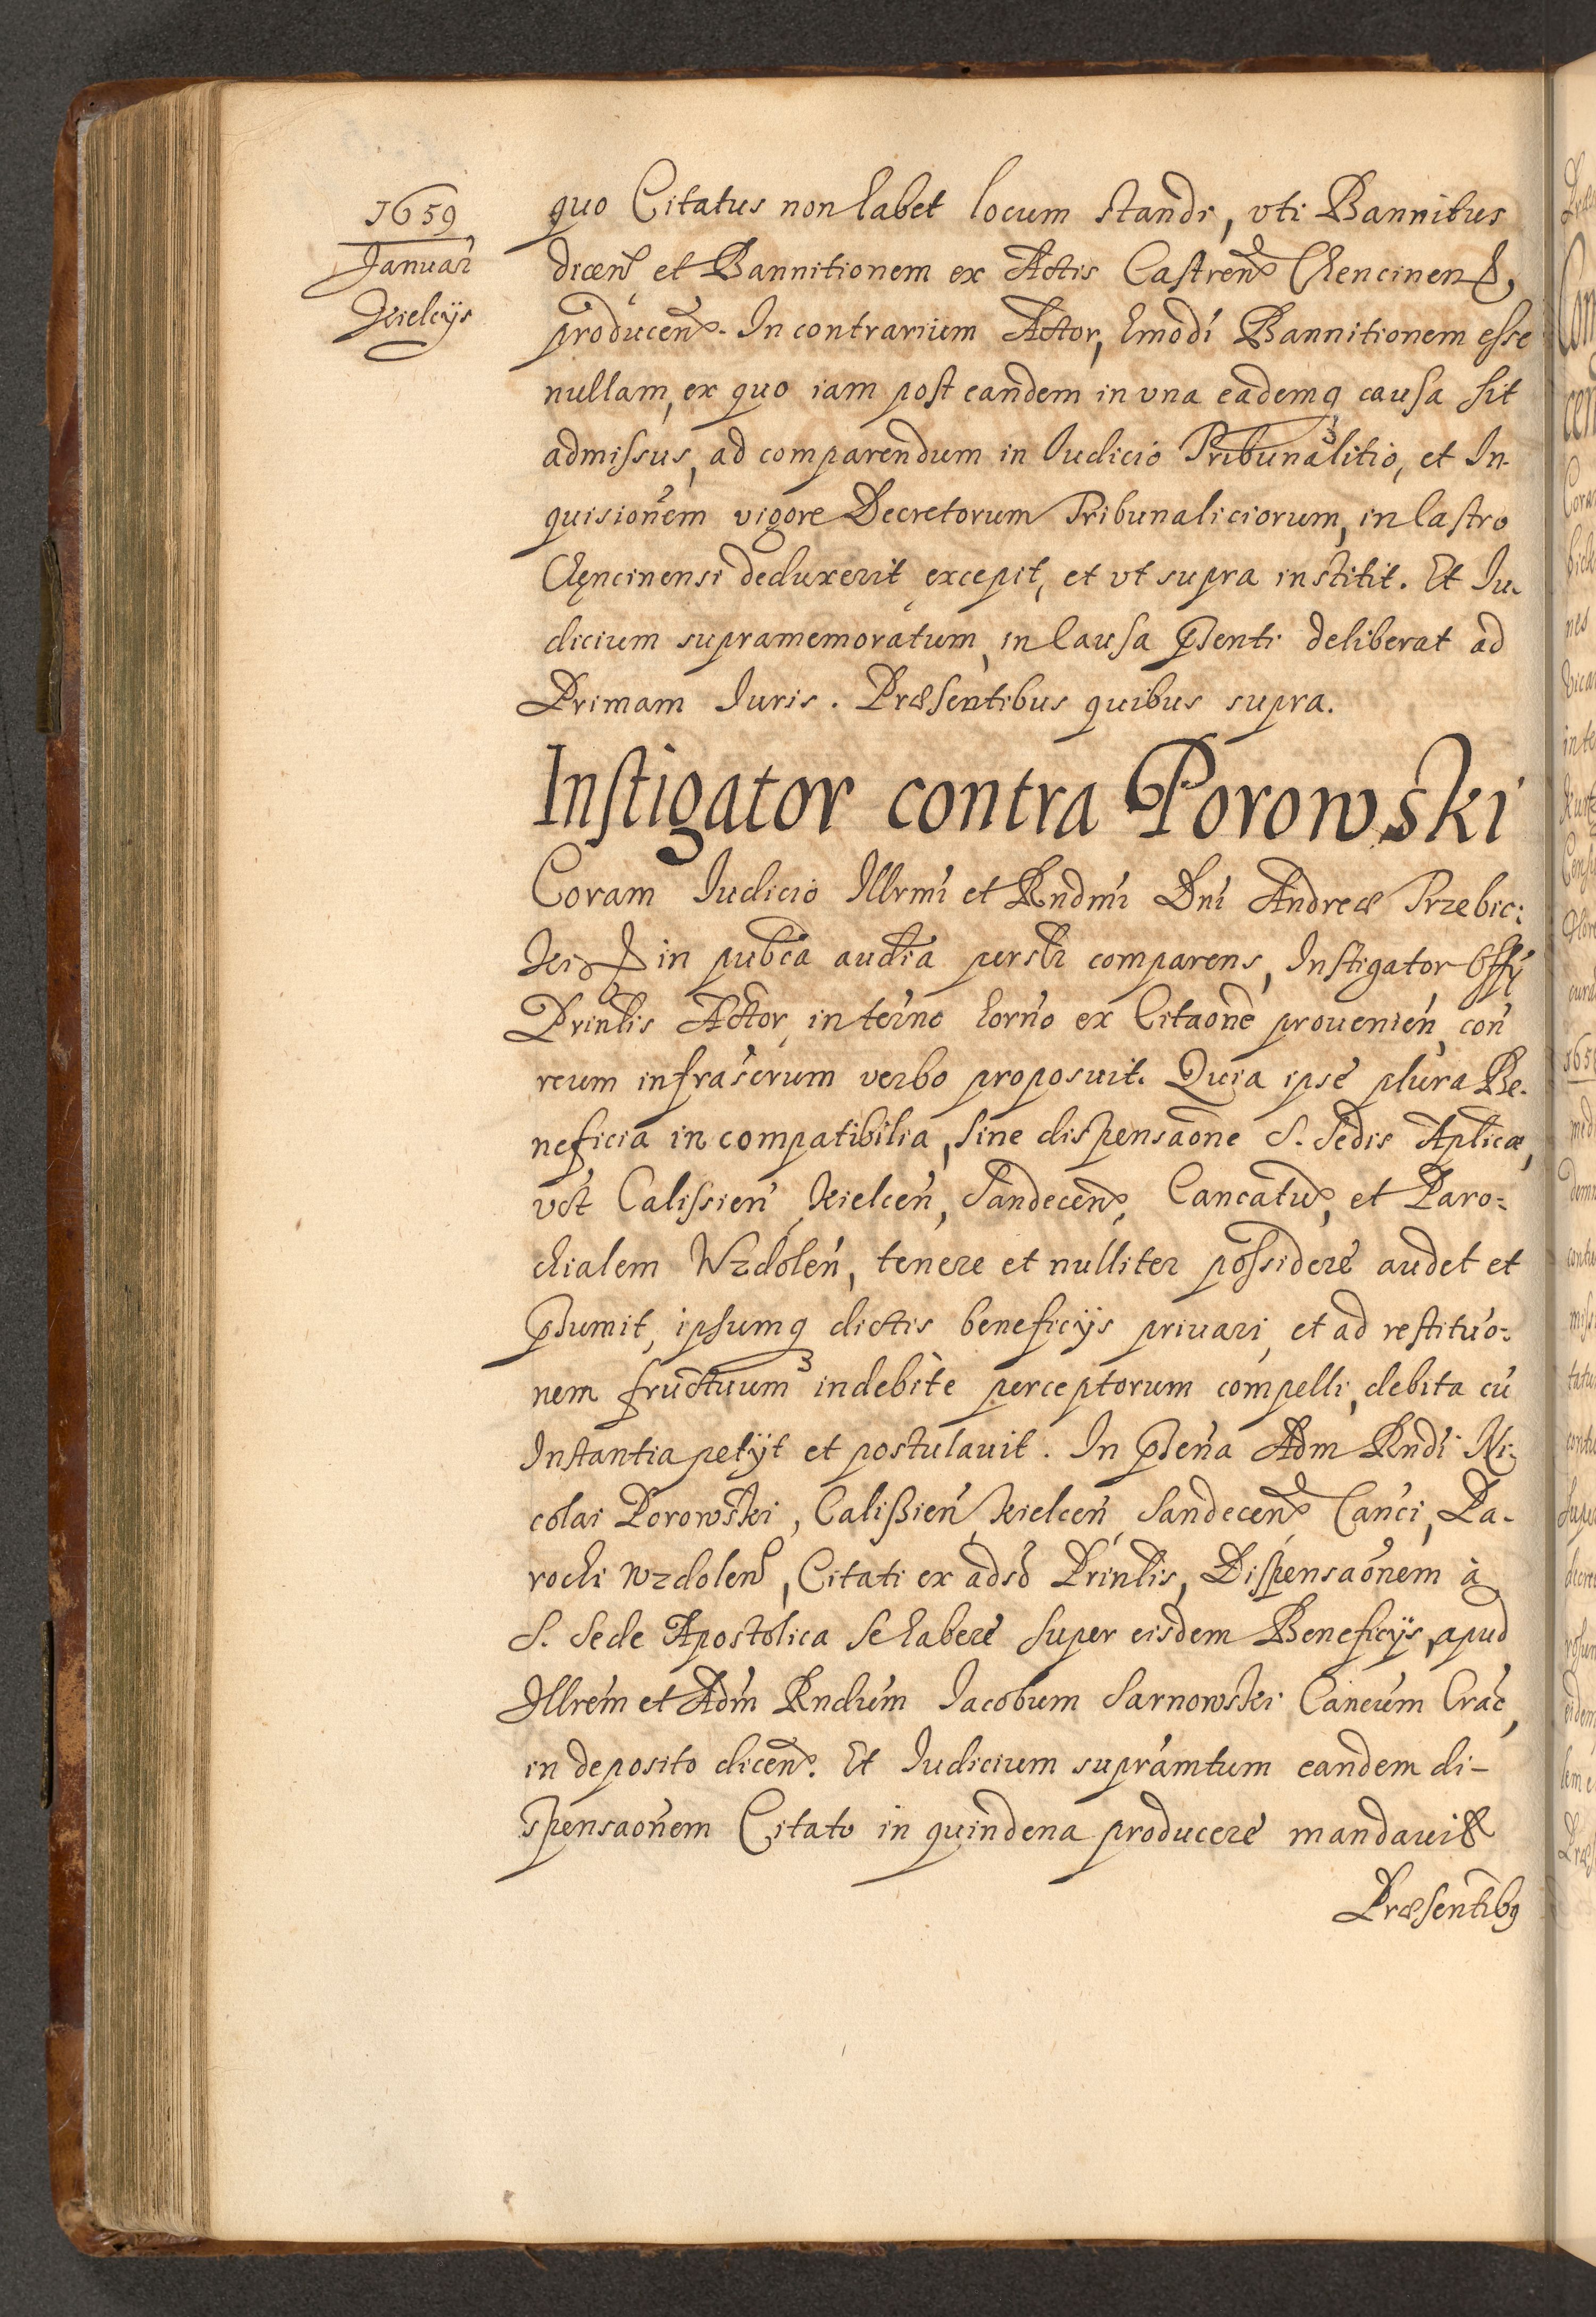 1659
Januar
Kielcijs
quo Citatus non habet locum standi, vti Bannitus
dicen et Bannitionem ex Actis Castren Chencinen &,
producen. In contrarium Actor, hmodi Bannitionem esse
nullam, ex quo iam post eandem in vna eademq causa sit
admissus, ad comparendum in Iudicio Tribunalitio, et In-
quisionem vigore Decretorum Tribunaliciorum, in Castro
Chęncinensi deduxerit excepit, et vt supra institit. Et Iu-
dicium supramemoratum, in Causa pnsenti deliberat ad
Primam Iuris. Præsentibus quibus supra.
Instigator contra Porowski
Coram Iudicio Illrmi et Rndmi Dni Andreæ Trzebic:
ki & in pubca audia personlr comparens, Instigator Offy
Prinlis Actor, in termo horno ex Citaone prouenien, con
reum infrascrum verbo proposuit. Quia ipse plura Be-
neficia in compatibilia, sine dispensaone S. Sedis Aplicæ,
vdt Calissien, Kielcen, Sandecen, Cancatus, et Paro:
chialem Wzdolen, tenere et nulliter possidere audet et
psumit, ipsumq dictis beneficijs priuari, et ad restituo:
nem fructuum indebite perceptorum compelli, debita cu
Instantia petijt et postulauit. In psena Adm Rndi Ni-
colai Porowski, Calißien, Kielcen, Sandecen Canci, Pa-
rochi Wzdolen, Citati ex adso Prinlis, Dispensaonem à
S. Sede Apostolica se habere super eisdem Beneficijs, apud
Illrem et Adm Rndum Jacobum Sarnowski Cancum Crac,
in deposito dicen. Et Iudicium supramtum eandem di-
spensaonem Citato in quindena producere mandauit
Præsentibq